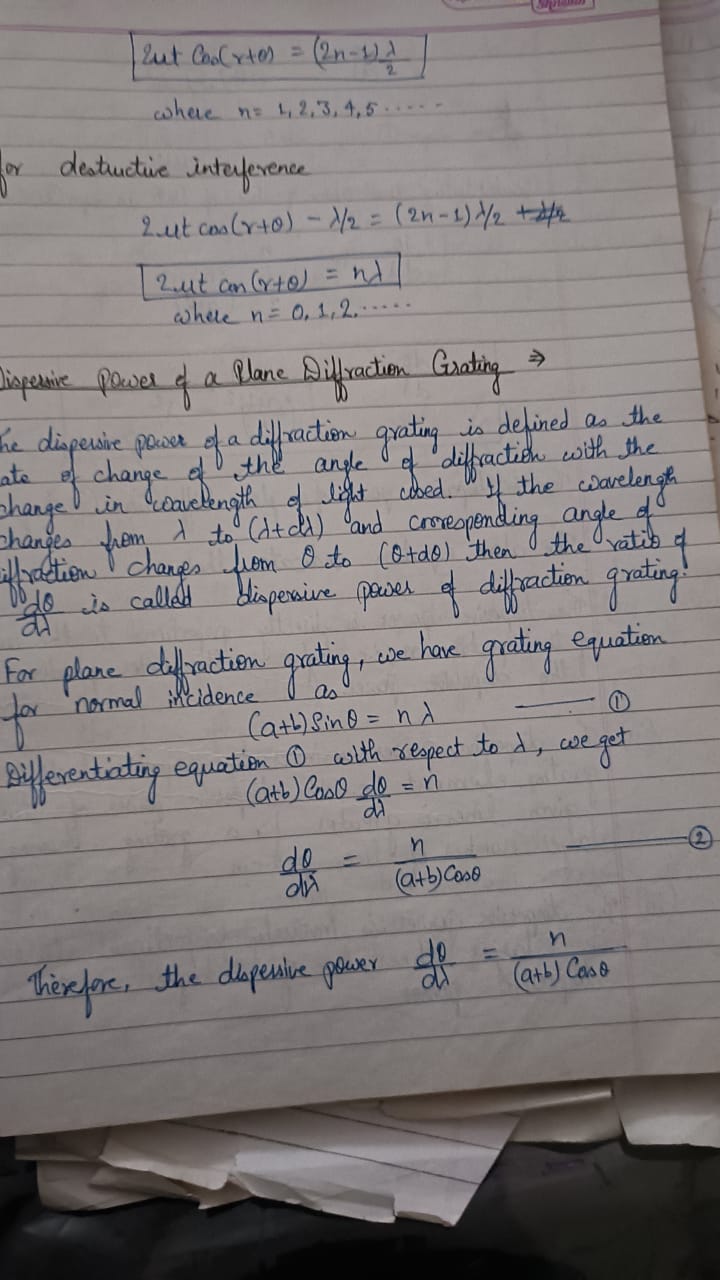 2ut Cos(r+θ) = (2n-1) λ/2
where n= 1,2,3,4,5 ......
for destructive interference
2ut cos(r+θ) - λ/2 = (2n-1) λ/2
2ut cos(r+θ) = nλ
where n= 0,1,2,......
Dispersive power of a Plane Diffraction Grating ⇒
The dispersive power of a diffraction grating is defined as the
rate of change of the angle of diffraction with the
change in wavelength of light used. If the wavelength
changes from λ to (λ+dλ) and corresponding angle of
diffraction changes from θ to (θ+dθ) then the ratio of
dθ/dλ is called dispersive power of diffraction grating.
For plane diffraction grating, we have grating equation
for normal incidence as
(a+b) Sinθ = nλ —— ①
Differentiating equation ① with respect to λ, we get
(a+b) Cosθ dθ/dλ = n
dθ/dλ = n/(a+b)Cosθ —— ②
Therefore, the dispersive power dθ/dλ = n/(a+b) Cosθ